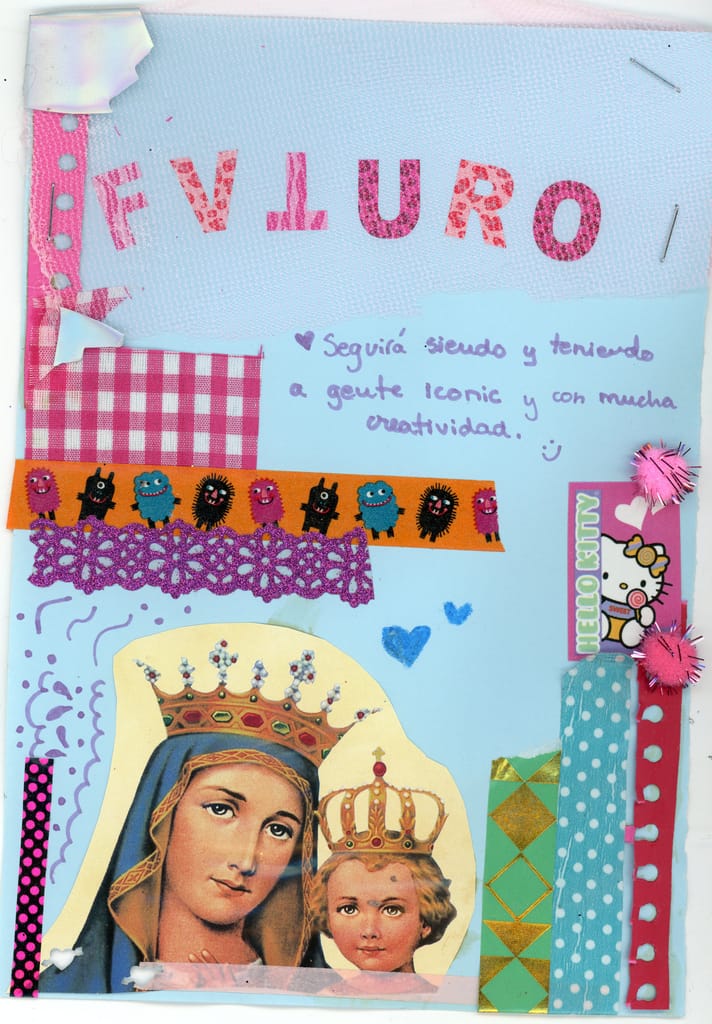 FUTURO
Seguirá siendo y teniendo
a gente iconic y con mucha
creatividad. :)
HELLO KITTY
SWEET